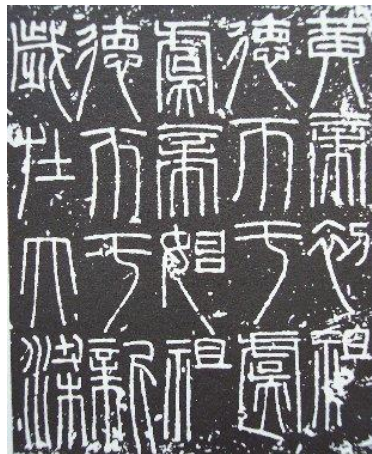 黃帝初祖
德帀于虞
虞帝始祖
德帀于新
歲在大梁